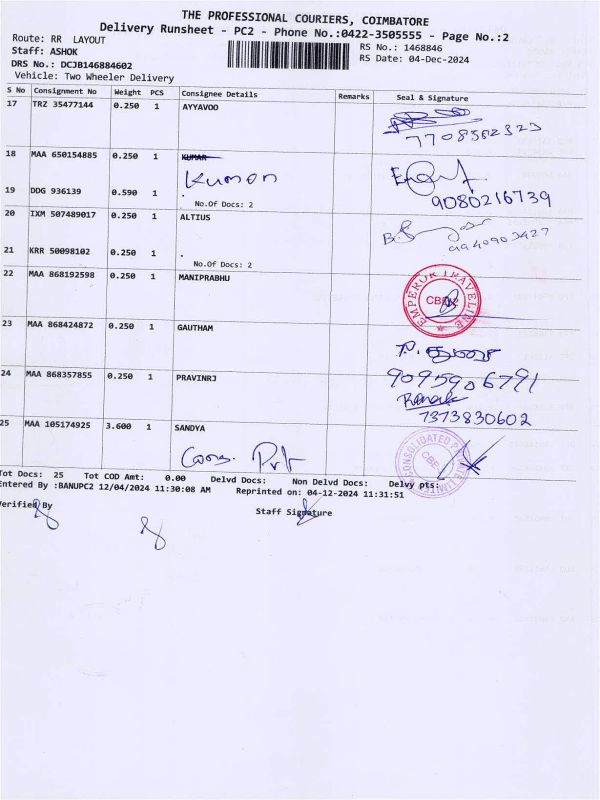 THE PROFESSIONAL COURIERS, COIMBATORE
Delivery Runsheet - PC2 - Phone No.:0422-3505555 - Page No.:2
Route: RR LAYOUT
RS No.: 1468846
Staff: ASHOK
RS Date: 04-Dec-2024
DRS No.: DCJB146884602
Vehicle: Two Wheeler Delivery
S No Consignment No Weight PCS Consignee Details Remarks Seal & Signature
17 TRZ 35477144 0.250 1 AYYAVOO
7708562323
18 MAA 650154885 0.250 1 KUMAR
Kumon
19 DDG 936139 0.590 1 .
No.Of Docs: 2
9080216739
20 IXM 507489017 0.250 1 ALTIUS
21 KRR 50098102 0.250 1 .
No.Of Docs: 2
22 MAA 868192598 0.250 1 MANIPRABHU
EMPEROR TRAVELINE
23 MAA 868424872 0.250 1 GAUTHAM
24 MAA 868357855 0.250 1 PRAVINRJ
9095906791
7373830602
25 MAA 105174925 3.600 1 SANDYA
Cons. Pvt
CONSOLIDATED
LIMITED
Tot Docs: 25 Tot COD Amt: 0.00 Delvd Docs: Non Delvd Docs: Delvy pts:
Entered By :BANUPC2 12/04/2024 11:30:08 AM Reprinted on: 04-12-2024 11:31:51
Verified By
Staff Signature